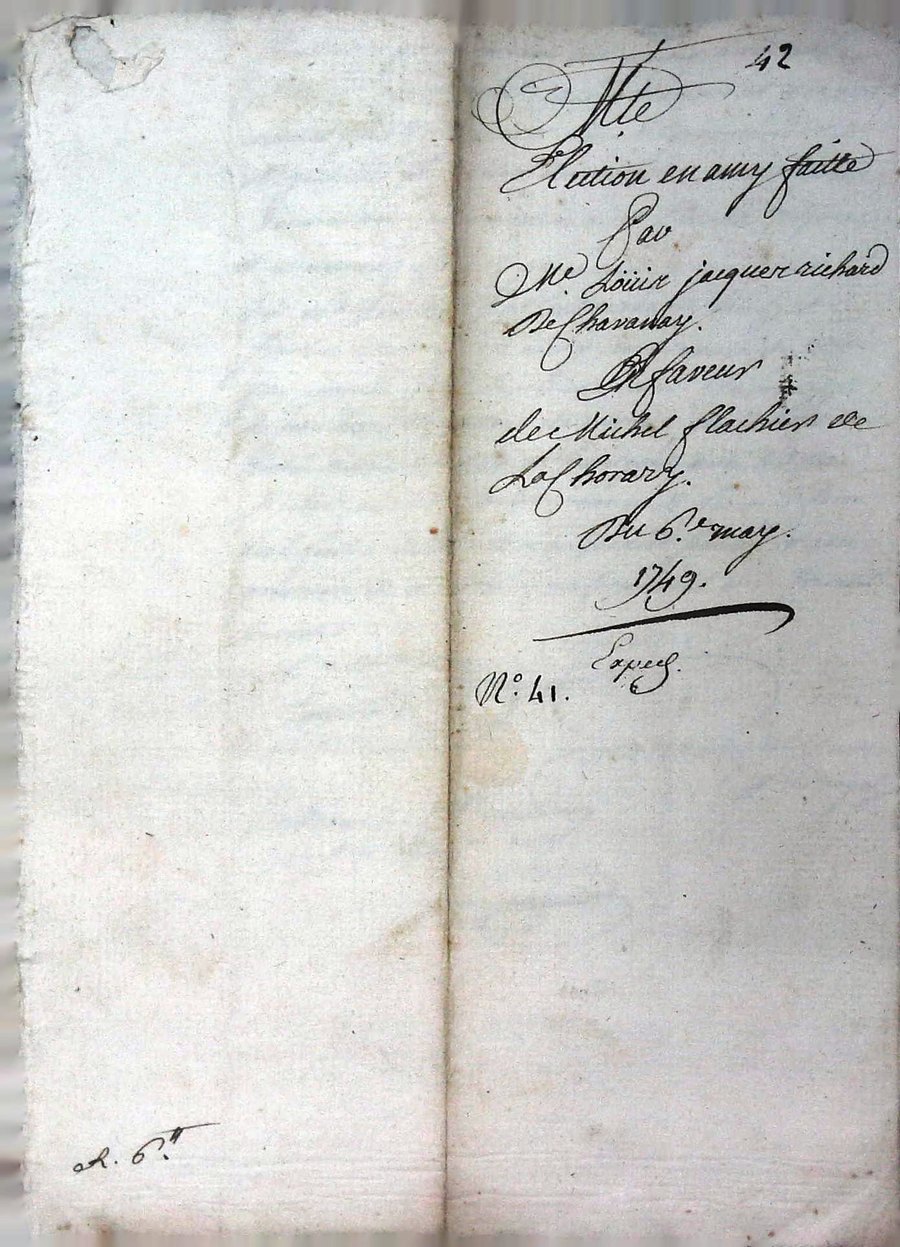 42
Election en amy faitte
Par
Me. Loüis jacques richard
De Chavanay.
En faveur
de Michel flachier de
La Chorary.
Du 6.e may.
1749.
Exped.
N.o 41.
R. 6.tt